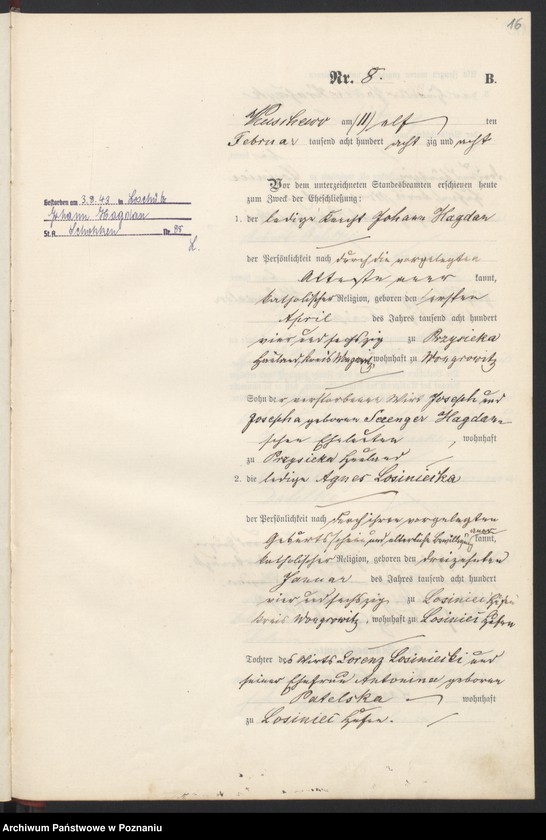 16
Nr. 8. B.
am (11) elf ten
Februar tausend acht hundert acht zig und acht
Vor dem unterzeichneten Standesbeamten erschienen heute
zum Zweck der Eheschließung:
1. der ledige Knecht Johann Hagdan
der Persönlichkeit nach durch die vorgelegten
Atteste aner kannt,
katholischer Religion, geboren den ersten
April des Jahres tausend acht hundert
vier und sechszig zu Przysieka
Hauland Kreis Wongrowitz, wohnhaft zu Wongrowitz
Sohn der verstorbenen Wirt Joseph und
Josepha geborenen Hagdan-
schen Eheleuten, wohnhaft
zu Przysieka Hauland
2. die ledige Agnes Losinieska
der Persönlichkeit nach durch ihren vorgelegten
Geburtsschein und elterliche Bewilligung aner kannt,
katholischer Religion, geboren den dreizehnten
Januar des Jahres tausend acht hundert
vier und sechszig zu Losiniec Hufen
Kreis Wongrowitz, wohnhaft zu Losiniec Hufen
Tochter des Wirts Lorenz Losinieski und
seiner Ehefrau Antonina geborenen
Patelska wohnhaft
zu Losiniec Hufen.
Gestorben am 3.9.43 in
Johann Hagdan
St.A. Schokken Nr. 85
H.
Archiwum Państwowe w Poznaniu